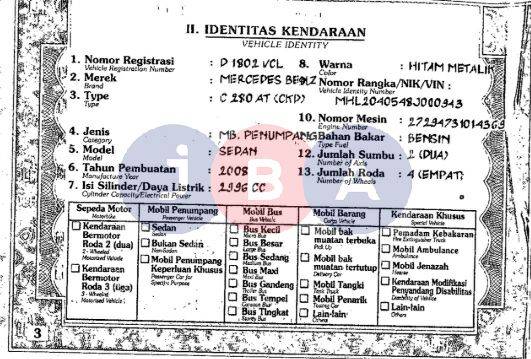 II. IDENTITAS KENDARAAN
VEHICLE IDENTITY
1. Nomor Registrasi : D 1802 VCL
Vehicle Registration Number
2. Merek : MERCEDES BENZ
Brand
3. Type : C 280 AT (CKD)
Type
4. Jenis : MB. PENUMPANG
Category
5. Model : SEDAN
Model
6. Tahun Pembuatan : 2008
Manufacture Year
7. Isi Silinder/Daya Listrik : 2996 CC
Cylinder Capacity/Electrical Power
8. Warna : HITAM METALIK
Color
Nomor Rangka/NIK/VIN :
Vehicle Identity Number
MHL2040548J000943
10. Nomor Mesin : 27294731014369
Engine Number
Bahan Bakar : BENSIN
Type Fuel
12. Jumlah Sumbu : 2 (DUA)
Number of Axis
13. Jumlah Roda : 4 (EMPAT)
Number of Wheels
iBA
Sepeda Motor
Motorbike
Kendaraan
Bermotor
Roda 2 (dua)
2 - Wheeled
Motorized Vehicle
Kendaraan
Bermotor
Roda 3 (tiga)
3 - Wheeled
Motorized Vehicle
Mobil Penumpang
Passenger Vehicle
Sedan
Sedan
Bukan Sedan
Non-Sedan
Mobil Penumpang
Keperluan Khusus
Passenger Car for
Specific Purpose
Mobil Bus
Bus Vehicle
Bus Kecil
Micro Bus
Bus Besar
Large Bus
Bus Sedang
Medium Bus
Bus Maxi
Maxi Bus
Bus Gandeng
Bus Tempel
Bus Tingkat
Mobil Barang
Cargo Vehicle
Mobil bak
muatan terbuka
Pick Up
Mobil bak
muatan tertutup
Delivery Car
Mobil Tangki
Tank Truck
Mobil Penarik
Towing Car
Lain-lain
Others
Kendaraan Khusus
Special Vehicle
Pemadam Kebakaran
Fire Extinguisher Truck
Mobil Ambulance
Ambulance
Mobil Jenazah
Hearse
Kendaraan Modifikasi
Penyandang Disabilitas
Disability of Vehicle
Lain-lain
Others
3